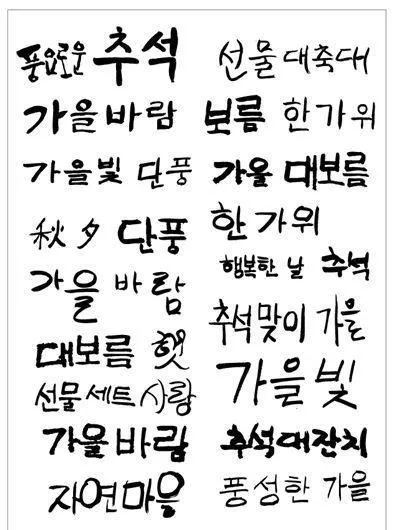 풍요로운 추석
가을바람
가을빛 단풍
秋夕 단풍
가을 바람
대보름 햇
선물세트 사랑
가을바람
자연마을
선물대축대
보름 한가위
가을 대보름
한가위
행복한 날 추석
추석맞이 가을
가을빛
추석대잔치
풍성한 가을